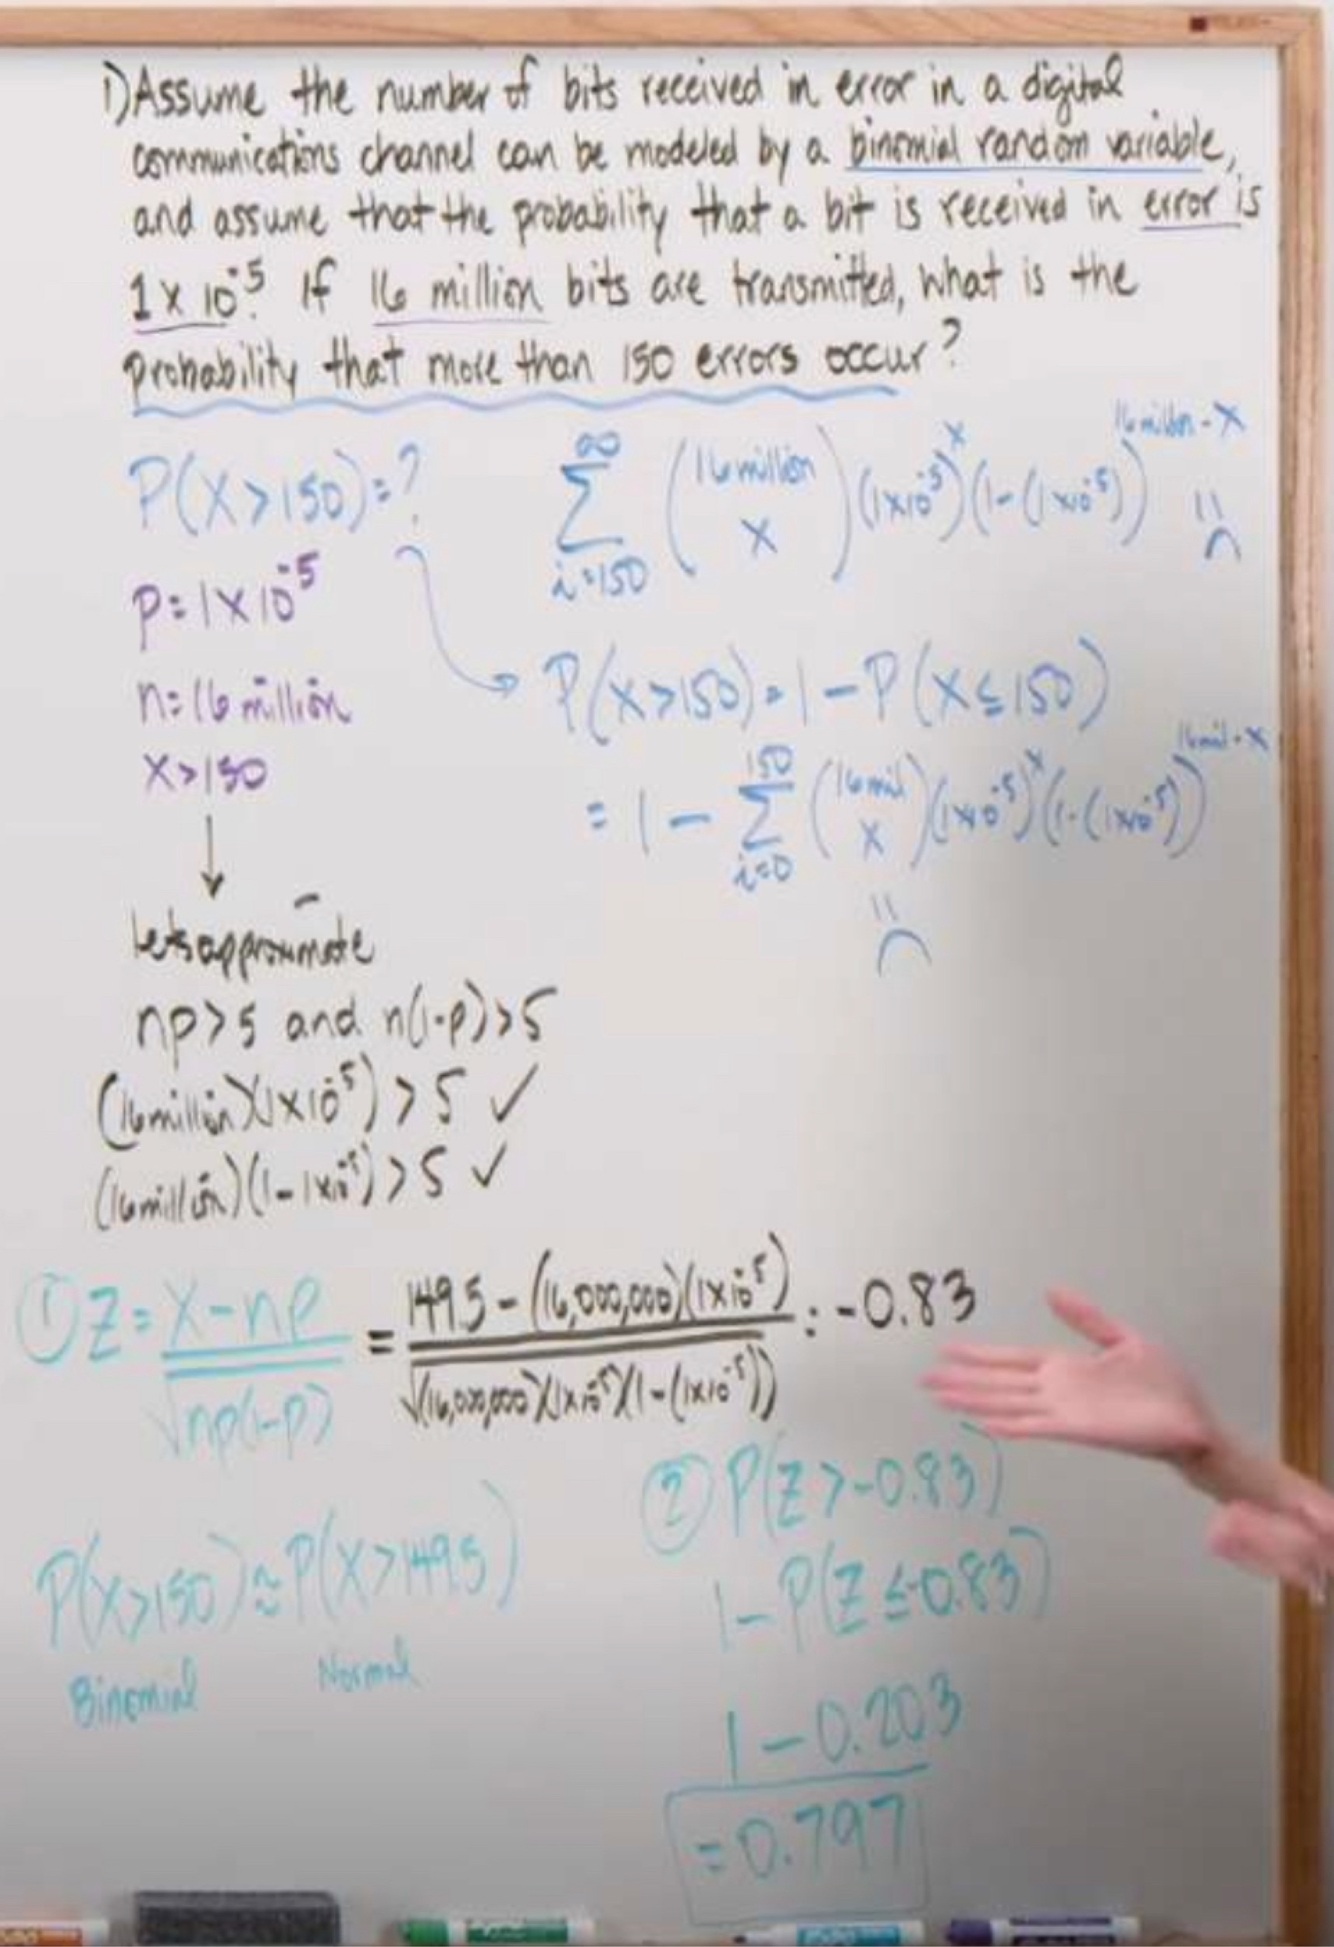 1) Assume the number of bits received in error in a digital
communications channel can be modeled by a binomial random variable,
and assume that the probability that a bit is received in error is
1 x 10⁻⁵. If 16 million bits are transmitted, what is the
probability that more than 150 errors occur?
P(X>150)=?
∞ Σ i=150 (16 million x) (1x10⁻⁵)ˣ (1-(1x10⁻⁵))^(16 million - x)
p=1x10⁻⁵
n=16 million
X>150
P(X>150)=1-P(X≤150)
= 1 - 150 Σ i=0 (16 mil x) (1x10⁻⁵)ˣ (1-(1x10⁻⁵))^(16 mil - x)
Lets approximate
np>5 and n(1-p)>5
(16 million)(1x10⁻⁵) > 5 ✓
(16 million)(1-1x10⁻⁵) > 5 ✓
① Z = X-np / √np(1-p) = 149.5-(16,000,000)(1x10⁻⁵) / √(16,000,000)(1x10⁻⁵)(1-(1x10⁻⁵)) = -0.83
② P(Z>-0.83)
P(X>150) ≈ P(X>149.5)
Binomial Normal
1-P(Z≤-0.83)
1-0.203
=0.797
EXPO